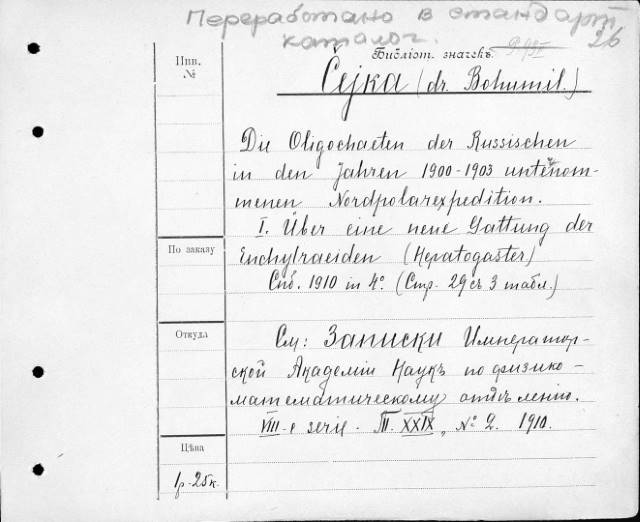 Переработано в стандартн
каталог. 26
Инв.
№
Библіот. значекъ.
Čejka (dr. Bohumil.)
Die Oligochaeten der Russischen
in den Jahren 1900-1903 unternom-
menen Nordpolarexpedition.
I. Über eine neue Gattung der
Enchytraeiden (Hepatogaster)
Спб. 1910 in 4º. (Стр. 29 съ 3 табл.)
По заказу
Откуда
См: Записки Император-
ской Академіи Наукъ по физико-
математическому отдѣленію.
VIII-e serie. Т. XXIX, № 2. 1910.
Цѣна
1р-25к.